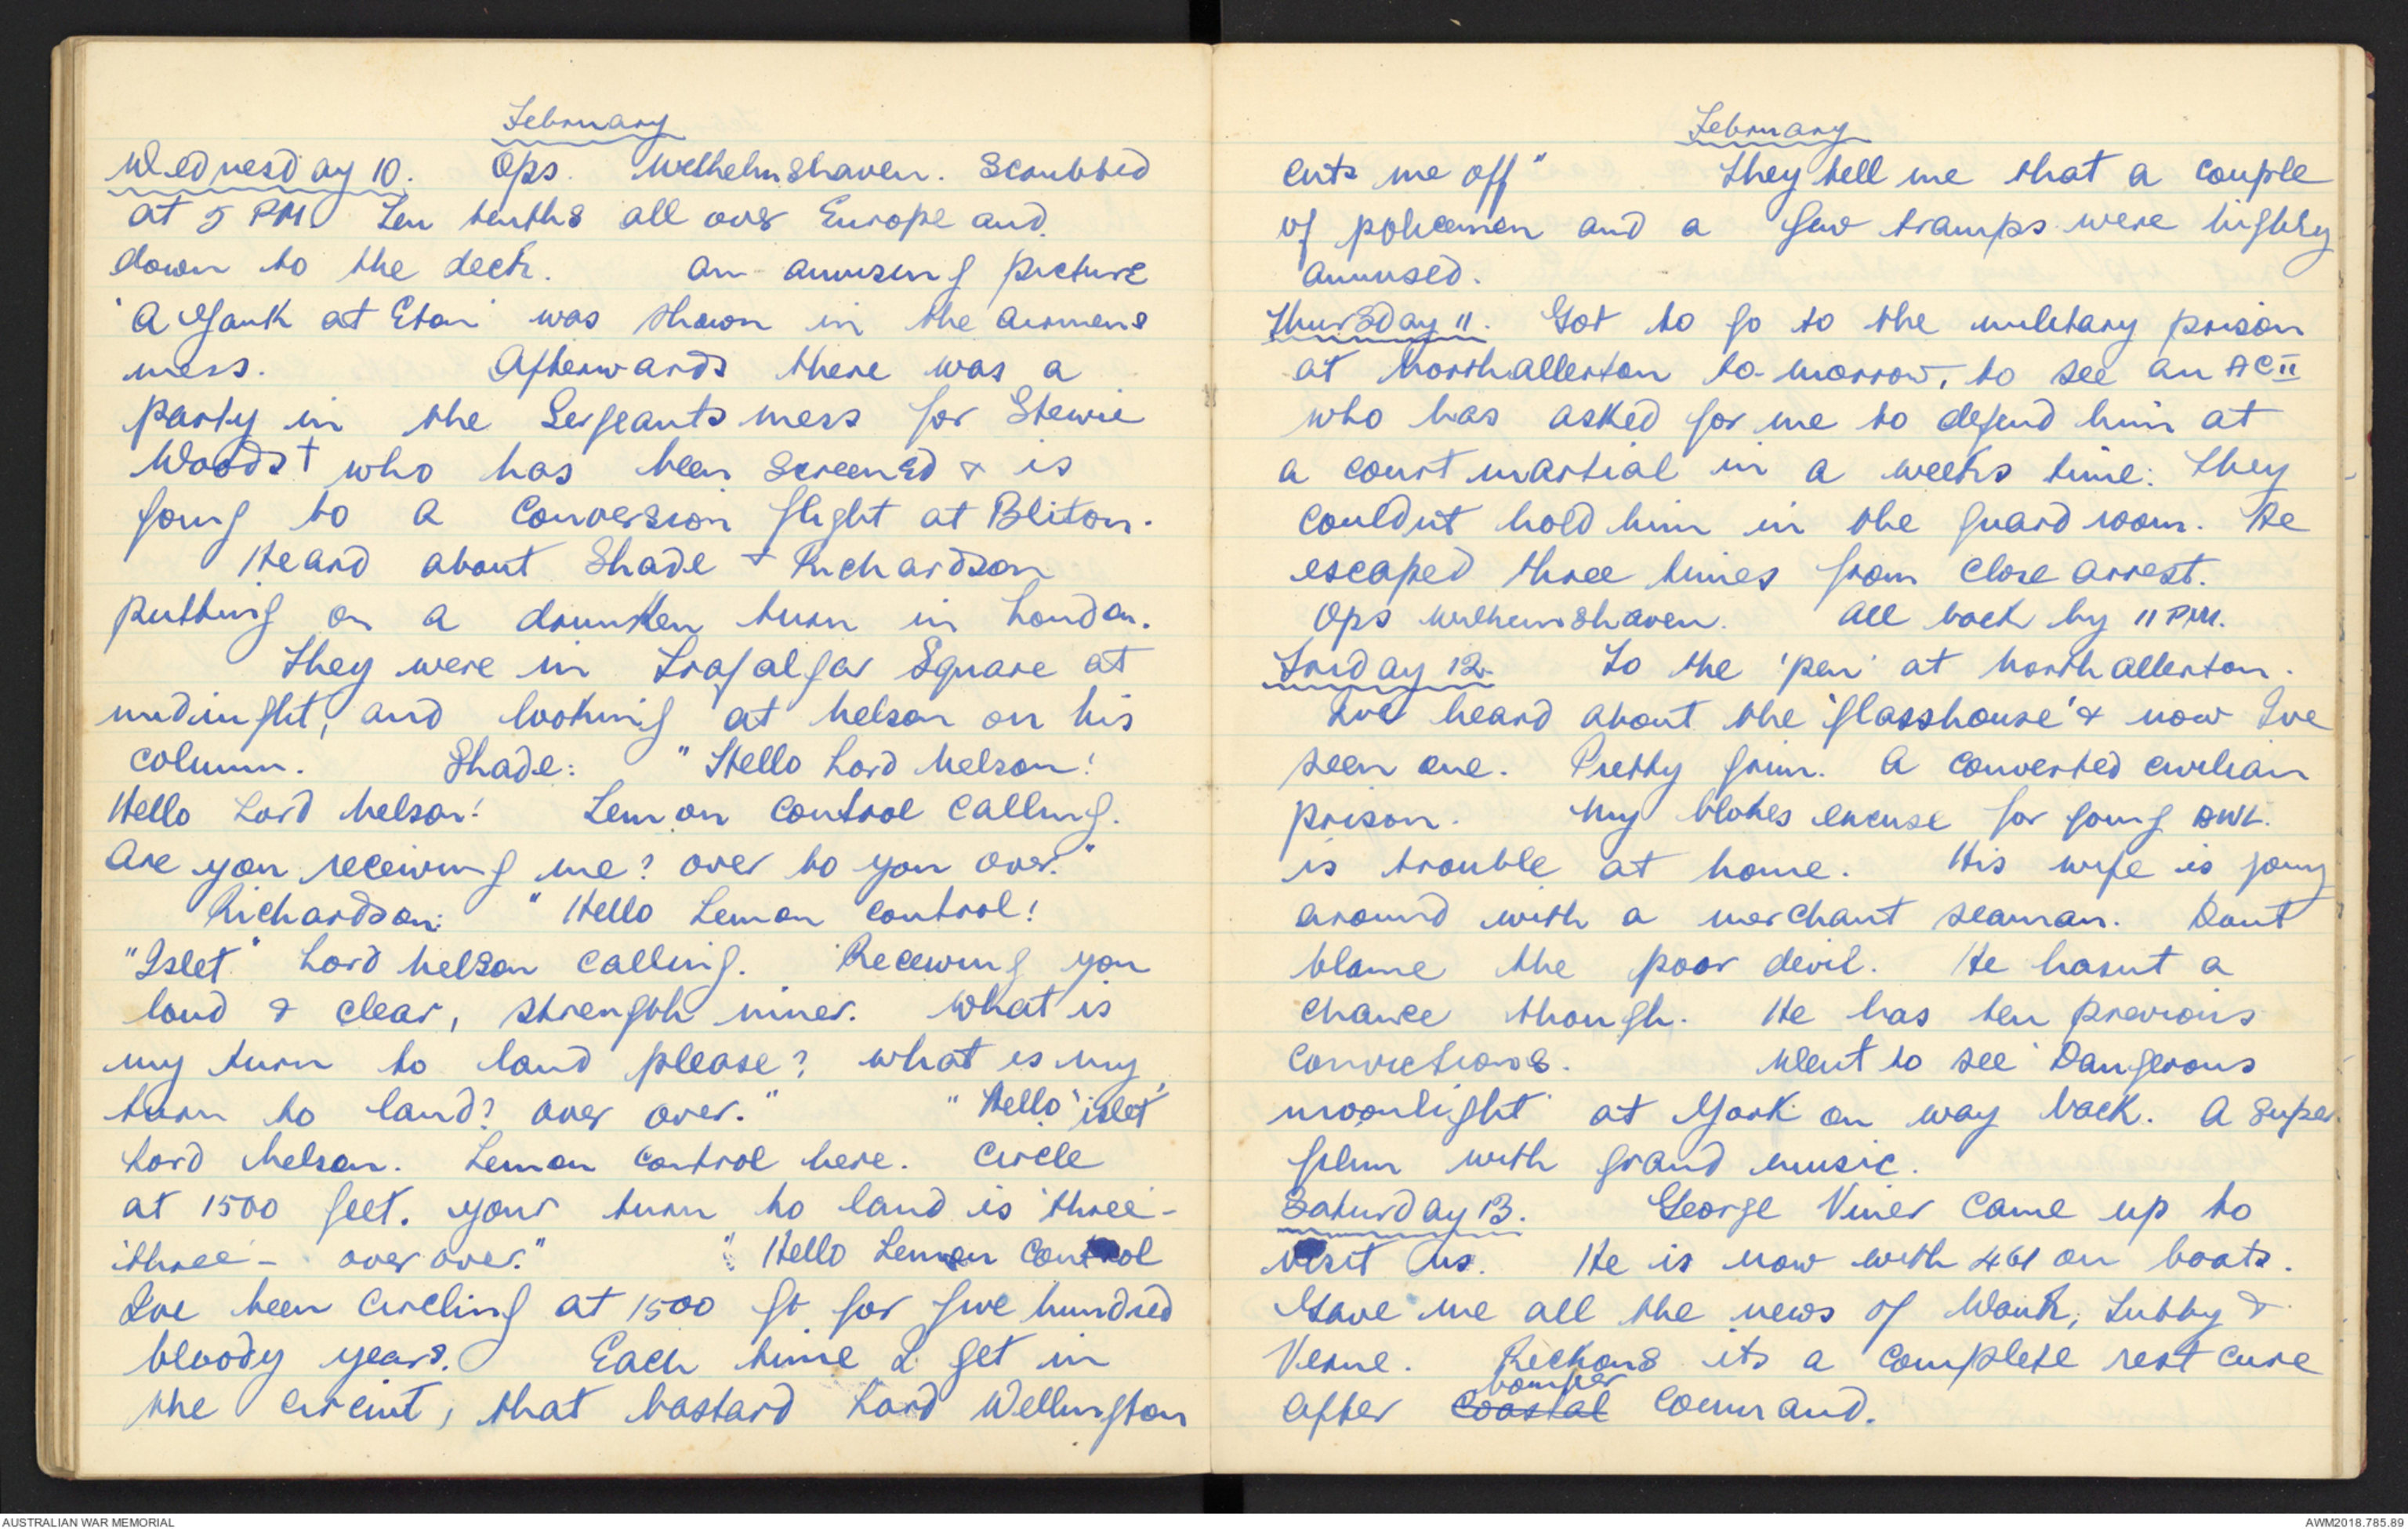 February
Wednesday 10. Ops. Wilhelmshaven. Scrubbed
at 5 PM. Ten tenths all over Europe and
down to the deck. An amusing picture
'A Yank at Eton' was shown in the airmens
mess. Afterwards there was a
party in the Sergeants mess for Stewie
Woods† who has been screened & is
going to a conversion flight at Bliton.
Heard about Shade & Richardson
putting on a drunken turn in London.
They were in Trafalgar Square at
midnight, and looking at Nelson on his
column. Shade: "Hello Lord Nelson!
Hello Lord Nelson! Lemon control calling.
Are you receiving me? over to you over."
Richardson: "Hello Lemon control!
"Islet" Lord Nelson calling. Receiving you
loud & clear, strength niner. What is
my turn to land please? what is my
turn to land? over over." "Hello 'islet'
Lord Nelson. Lemon control here. Circle
at 1500 feet. your turn to land is 'three' -
'three' - over over." "Hello Lemon control
Ive been circling at 1500 ft for five hundred
bloody years. Each time I get in
the circuit, that bastard Lord Wellington
February
cuts me off" They tell me that a couple
of policemen and a few tramps were highly
amused.
Thursday 11. Got to go to the military prison
at Northallerton to-morrow, to see an AC II
who has asked for me to defend him at
a court martial in a weeks time. They
couldnt hold him in the guard room. He
escaped three times from close arrest.
Ops Wilhemshaven. All back by 11 PM.
Friday 12. To the 'pen' at Northallerton.
Ive heard about the 'glasshouse' & now Ive
seen one. Pretty grim. A converted civilian
prison. My blokes excuse for going AWL.
is trouble at home. His wife is going
around with a merchant seaman. Dont
blame the poor devil. He hasnt a
chance though. He has ten previous
convictions. Went to see 'Dangerous
moonlight' at York on way back. A super
film with grand music.
Saturday 13. George Viner came up to
visit us. He is now with 461 on boats.
Gave me all the news of Wank, Tubby &
Verne. Reckons its a complete rest cure
bomber
after coastal command.
AUSTRALIAN WAR MEMORIAL
AWM2018.785.89